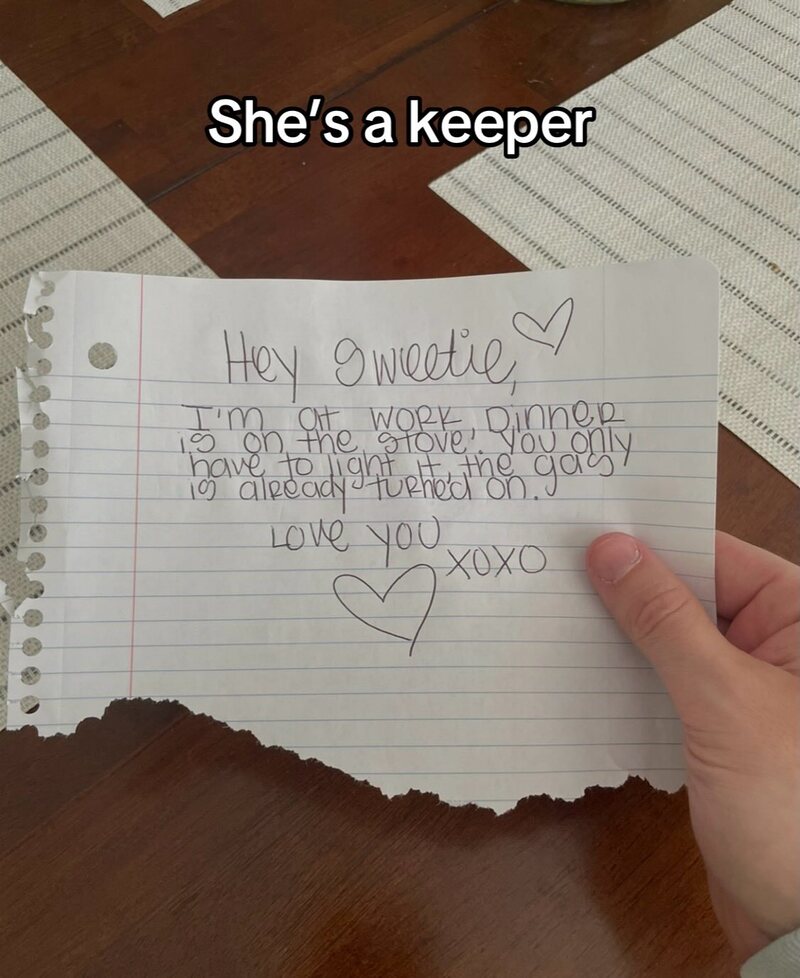 She's a keeper
Hey Sweetie,
I'm at work. Dinner
is on the stove. You only
have to light it, the gas
is already turned on.
Love you
xoxo